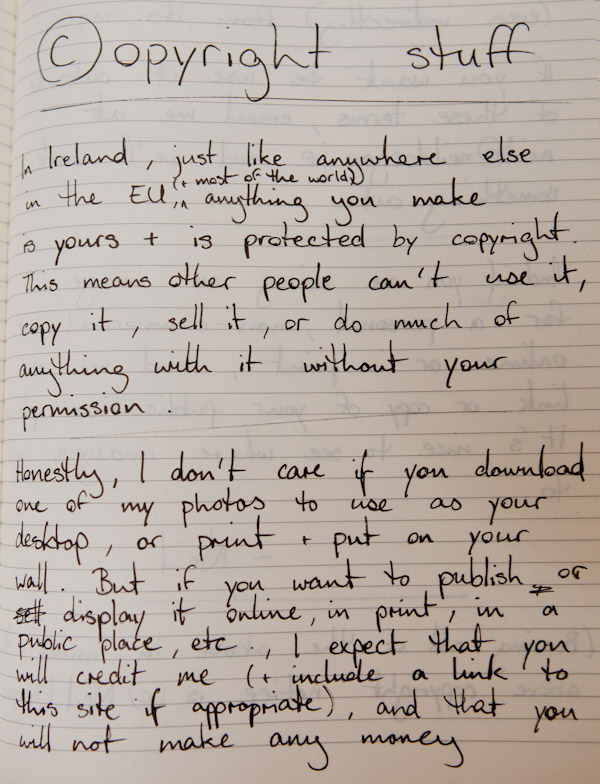 ©opyright stuff
In Ireland, just like anywhere else
in the EU, (+ most of the world) anything you make
is yours + is protected by copyright.
This means other people can't use it,
copy it, sell it, or do much of
anything with it without your
permission.
Honestly, I don't care if you download
one of my photos to use as your
desktop, or print + put on your
wall. But if you want to publish or
display it online, in print, in a
public place, etc., I expect that you
will credit me (+ include a link to
this site if appropriate), and that you
will not make any money